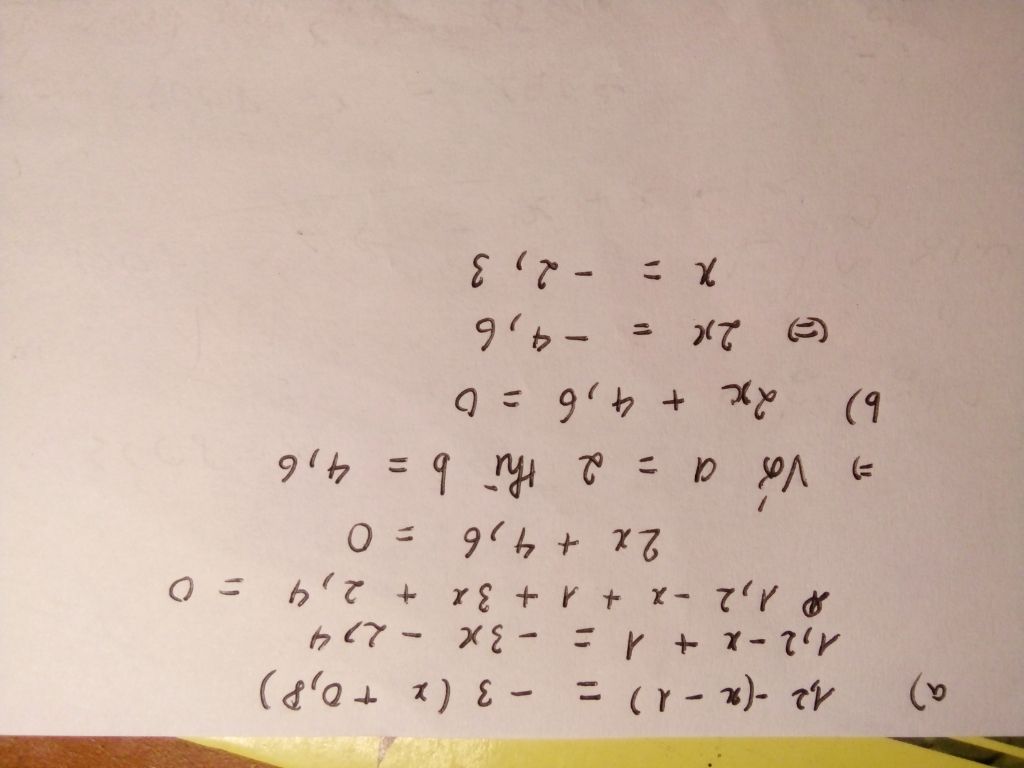 a) 1,2 - (x - 1) = - 3 (x + 0,8)
1,2 - x + 1 = - 3x - 2,4
1,2 - x + 1 + 3x + 2,4 = 0
2x + 4,6 = 0
=> Với a = 2 thì b = 4,6
b) 2x + 4,6 = 0
(=) 2x = - 4,6
x = - 2,3